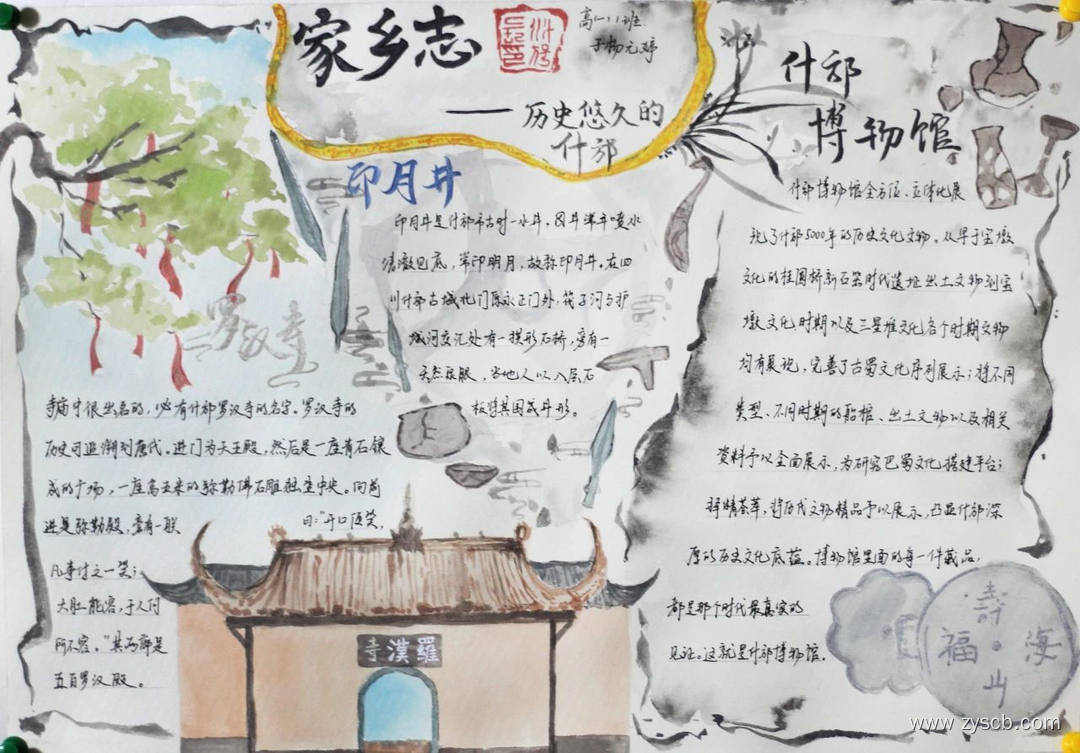 家乡志
——历史悠久的
什邡
高一、1班
印月井
印月井是什邡市古时一水井，因井深年喷水
清澈见底，常印明月，故称印月井。在四
川什邡古城北门陈永正门外，筏子河与护
城河交汇处有一拱形石桥，旁有一
天然泉眼，当地人以八层石
板将其围成井形。
罗汉寺
寺庙中很出名的，必有什邡罗汉寺的名字。罗汉寺的
历史可追溯到唐代。进门为天王殿，然后是一座青石镶
成的广场，一座高五米的弥勒佛石雕独坐中央。向前
进是弥勒殿，旁有一联
曰：“开口便笑，
凡事付之一笑；
大肚能容，于人何
所不容。”其两廊是
五百罗汉殿。
羅漢寺
什邡
博物馆
什邡博物馆全方位、立体化展
现了什邡5000年的历史文化文物。从早于宝墩
文化的桂圆桥新石器时代遗址出土文物到宝
墩文化时期以及三星堆文化各个时期文物
均有展现，完善了古蜀文化序列展示；将不同
类型、不同时期的船棺、出土文物以及相关
资料予以全面展示，为研究巴蜀文化搭建平台；
择精荟萃，将历代文物精品予以展示，凸显什邡深
厚的历史文化底蕴。博物馆里面的每一件藏品，
都是那个时代最真实的
见证。这就是什邡博物馆。
壽
福
海
山
www.zyscb.com